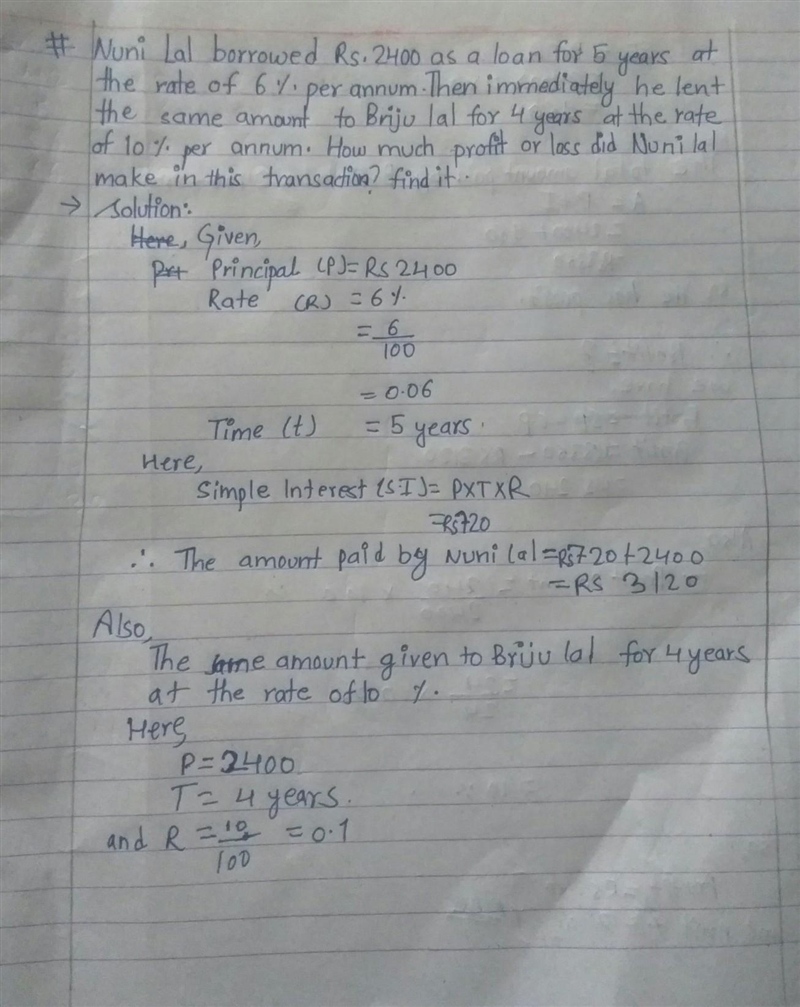 # Nuni Lal borrowed Rs. 2400 as a loan for 5 years at
the rate of 6 %. per annum. Then immediately he lent
the same amount to Briju lal for 4 years at the rate
of 10 %. per annum. How much profit or loss did Nuni lal
make in this transaction? find it.
→ Solution:
Here, Given,
Prt Principal (P) = RS 2400
Rate (R) = 6 %
= 6/100
= 0.06
Time (t) = 5 years.
Here,
Simple Interest (S.I) = PXTXR
= RS 720
∴ The amount paid by Nuni lal = RS 720 + 2400
= RS 3120
Also,
The same amount given to Briju lal for 4 years
at the rate of 10 %.
Here,
P = 2400
T = 4 years.
and R = 10/100 = 0.1